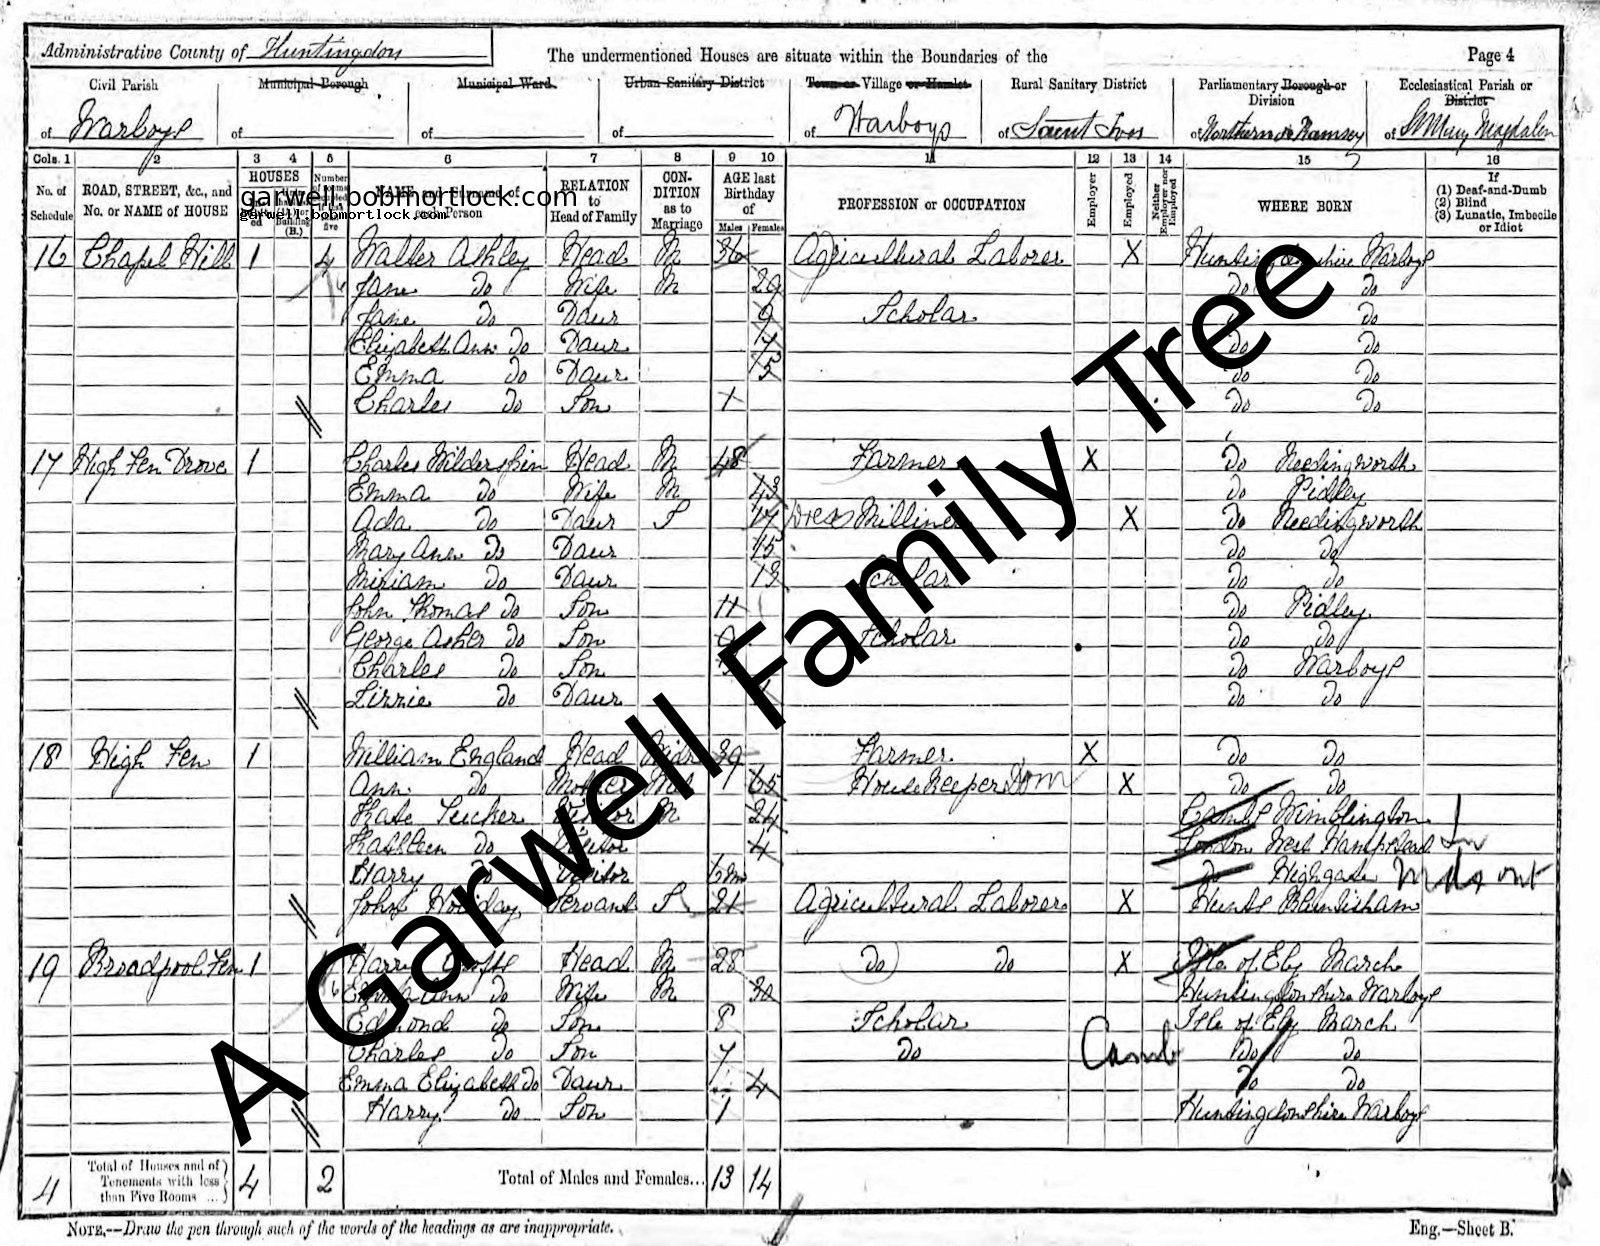 Administrative County of Huntingdon
The undermentioned Houses are situate within the Boundaries of the
Page 4
Civil Parish of Warboys
Municipal Borough of
Municipal Ward of
Urban Sanitary District of
Town or Village or Hamlet of Warboys
Rural Sanitary District of Saint Ives
Parliamentary Borough or Division of Northern or Ramsey
Ecclesiastical Parish or District of St Mary Magdalen
Cols. 1 2 3 4 5 6 7 8 9 10 11 12 13 14 15 16
No. of Schedule
ROAD, STREET, &c., and No. or NAME of HOUSE
HOUSES
NAME and Surname of each Person
RELATION to Head of Family
CONDITION as to Marriage
AGE last Birthday of
Males Females
PROFESSION or OCCUPATION
Employer
Employed
Neither Employer nor Employed
WHERE BORN
If (1) Deaf-and-Dumb (2) Blind (3) Lunatic, Imbecile or Idiot
garwell.bobmortlock.com
garwell.bobmortlock.com
16 Chapel Hill 1 4 Walter Ashley Head M 36 Agricultural Laborer X Huntingdonshire Warboys
Jane Do Wife M 29 Do Do
Jane Do Daur 9 Scholar Do
Elizabeth Ann Do Daur 7 Do Do
Emma Do Daur 5 Do Do
Charles Do Son 1 Do Do
17 High Fen Drove 1 Charles Wilderspin Head M 48 Farmer X Do Needingworth
Emma Do Wife M 43 Do Pidley
Ada Do Daur S 17 Dress Milliner X Do Needingworth
Mary Ann Do Daur 15 Do Do
Miriam Do Daur 13 Scholar Do Do
John Thomas Do Son 11 Do Pidley
George Asher Do Son 9 Scholar Do Do
Charles Do Son Do Warboys
Lizzie Do Daur 1 Do Do
18 High Fen 1 William England Head Widr 39 Farmer X Do Do
Ann Do Mother Wid 65 Housekeeper Dom X Do Do
Kate Tucker Visitor M 24 Cambs Wimblington
Kathleen Do Visitor 4 London West Hampstead
Harry Do Visitor 6m Do Highgate
John Holiday Servant S 21 Agricultural Laborer X Hunts Bluntisham
19 Broadpool Fen 1 Harry Crofts Head M 28 Do Do X Isle of Ely March
Emma Ann Do Wife M 30 Huntingdonshire Warboys
Edmond Do Son 8 Scholar Isle of Ely March
Charles Do Son 7 Do Camb Do Do
Emma Elizabeth Do Daur 4 Do Do
Harry Do Son 1 Huntingdonshire Warboys
4 Total of Houses and of Tenements with less than Five Rooms ... 4 2 Total of Males and Females... 13 14
NOTE.—Draw the pen through such of the words of the headings as are inappropriate.
Eng.—Sheet B.
A Garwell Family Tree